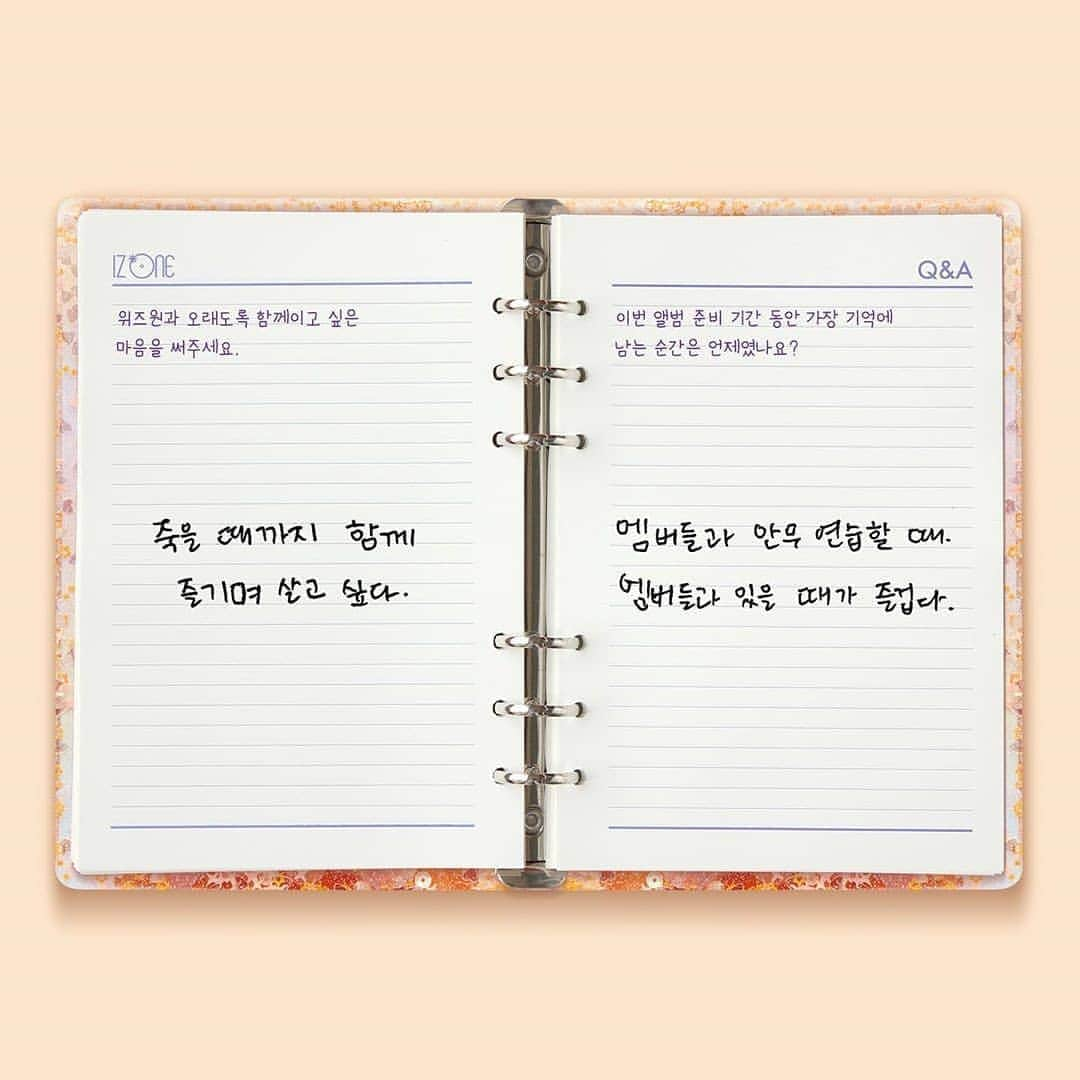 IZ*ONE
위즈원과 오래도록 함께이고 싶은
마음을 써주세요.
죽을 때까지 함께
즐기며 살고 싶다.
Q&A
이번 앨범 준비 기간 동안 가장 기억에
남는 순간은 언제였나요?
멤버들과 안무 연습할 때.
멤버들과 있을 때가 즐겁다.